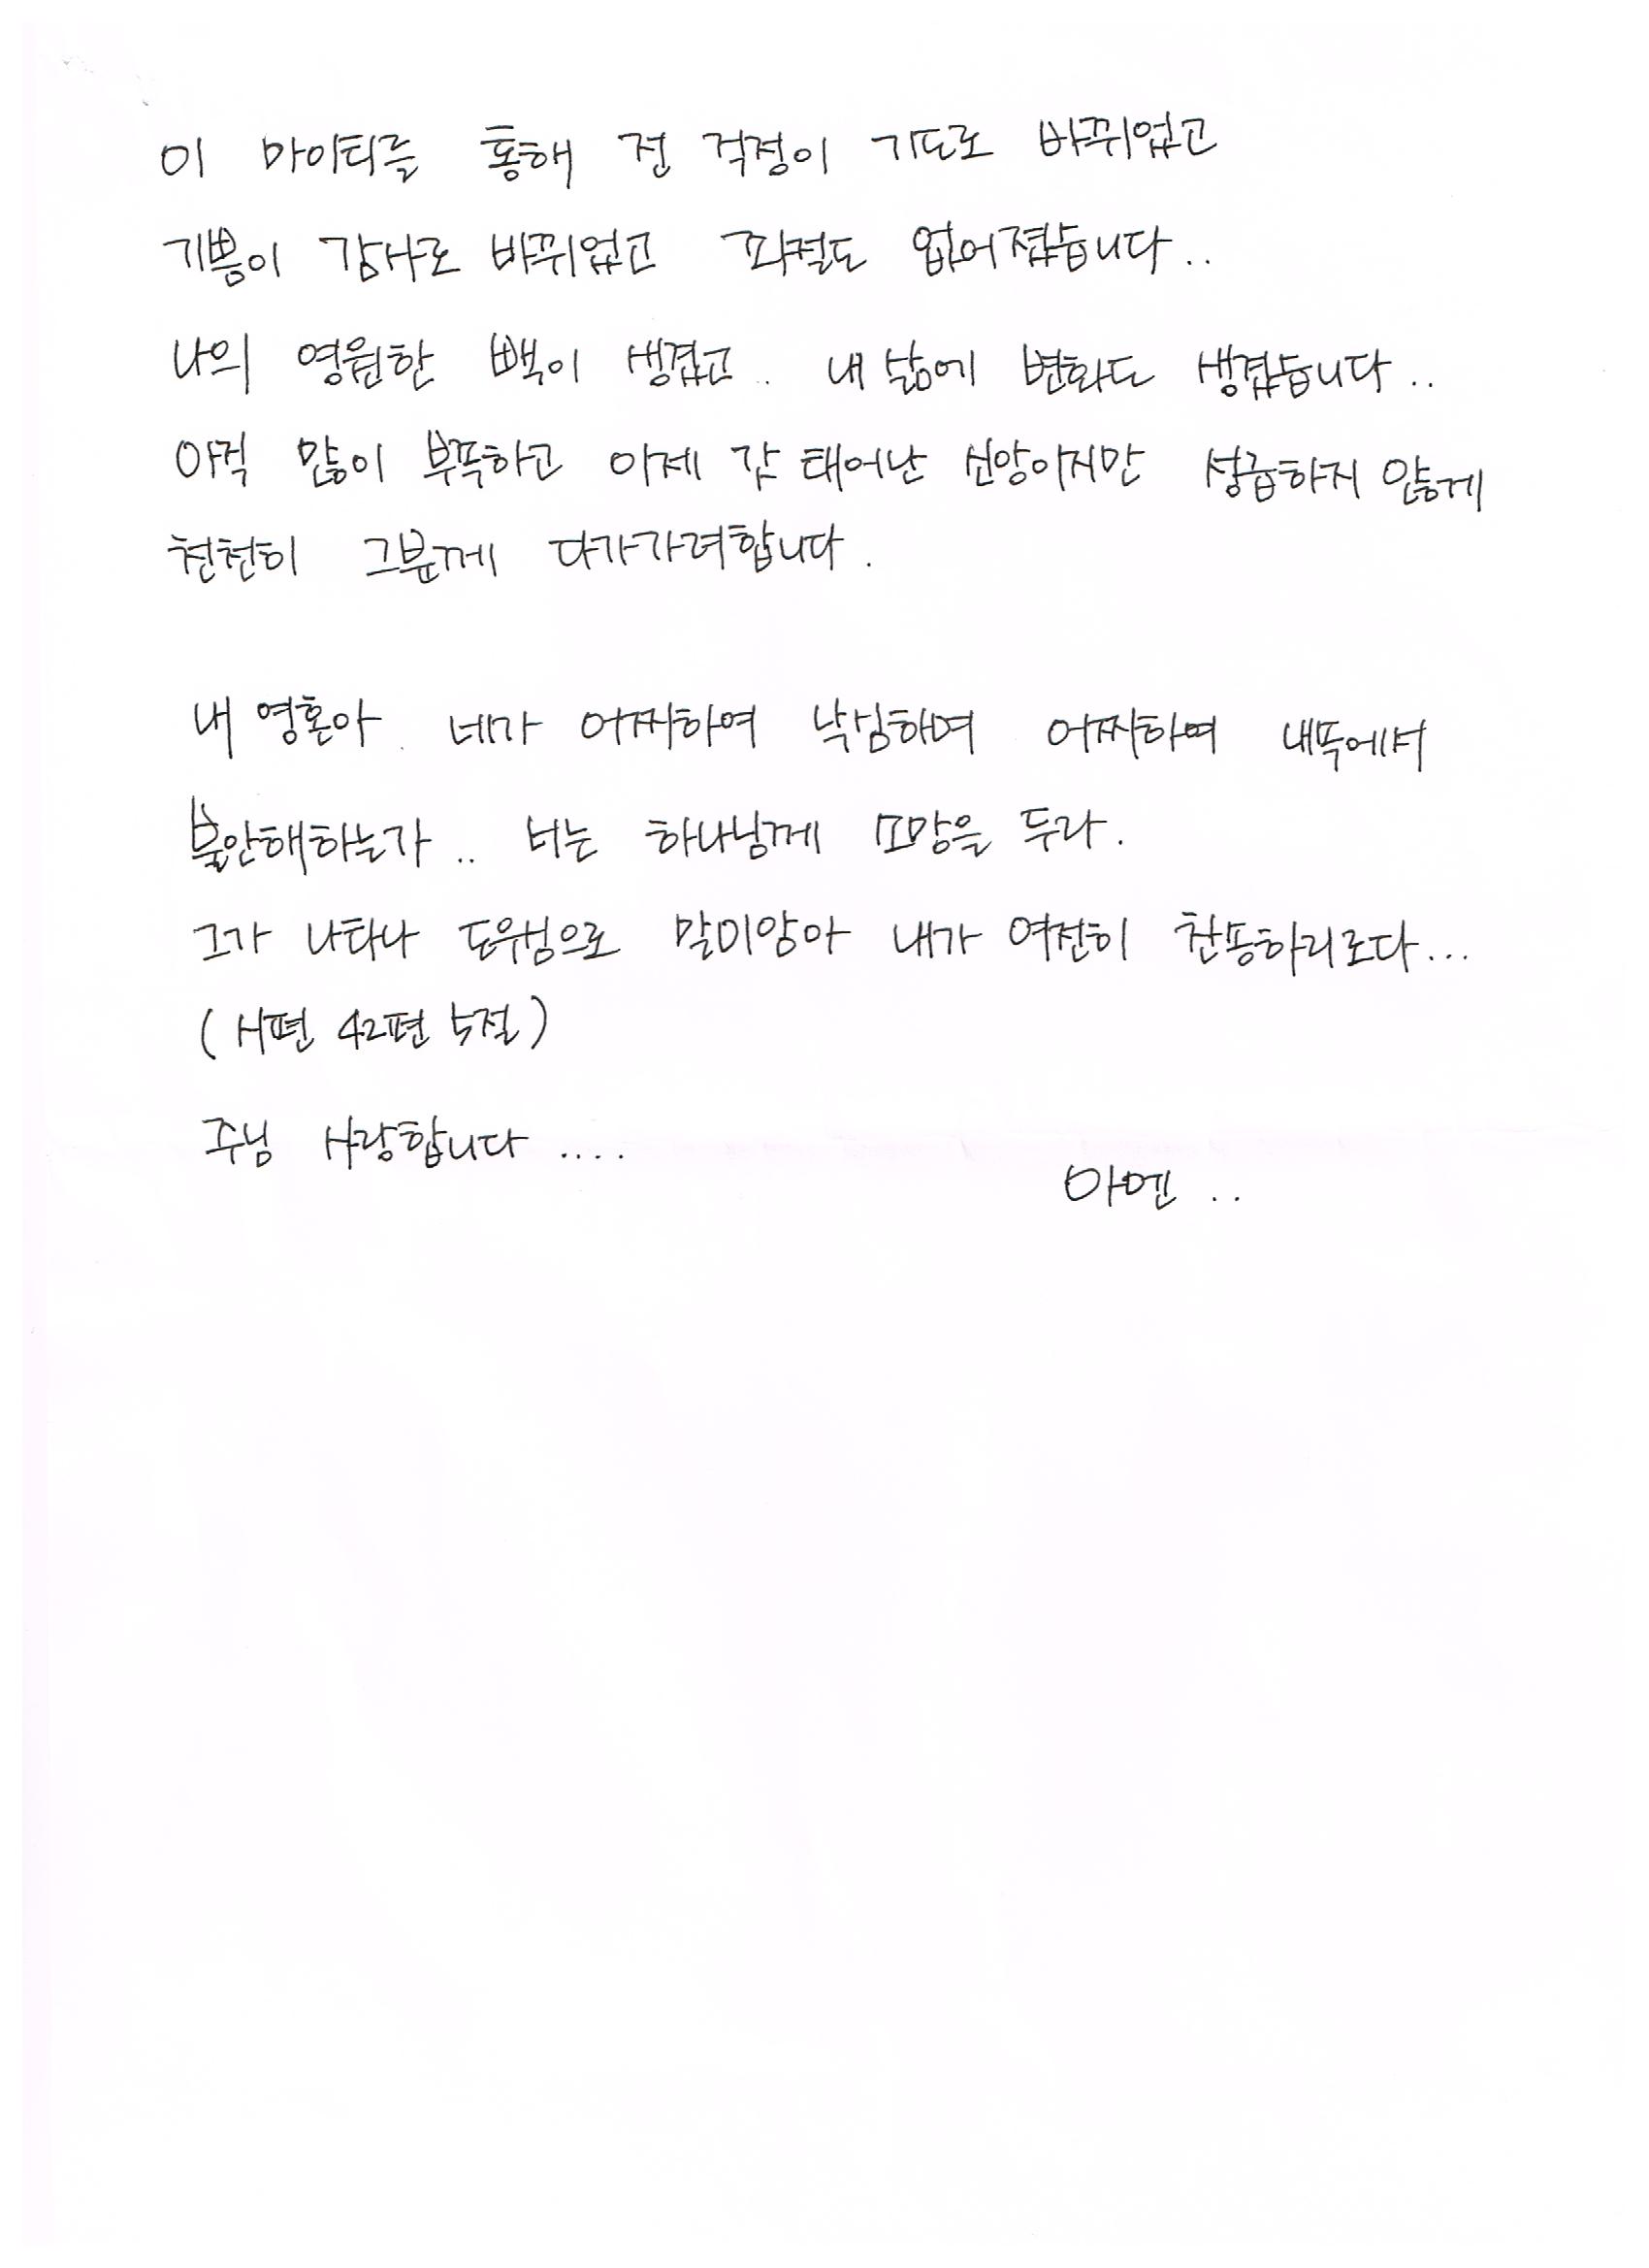 이 마이티를 통해 전 걱정이 기도로 바뀌었고
기쁨이 감사로 바뀌었고 좌절도 없어졌습니다..
나의 영원한 빽이 생겼고.. 내 삶에 변화도 생겼습니다..
아직 많이 부족하고 이제 갓 태어난 신앙이지만 성급하지 않게
천천히 그분께 다가가려합니다.
내 영혼아 네가 어찌하여 낙심하며 어찌하여 내속에서
불안해하는가.. 너는 하나님께 소망을 두라.
그가 나타나 도우심으로 말미암아 내가 여전히 찬송하리로다...
(시편 42편 5절)
주님 사랑합니다....
아멘..